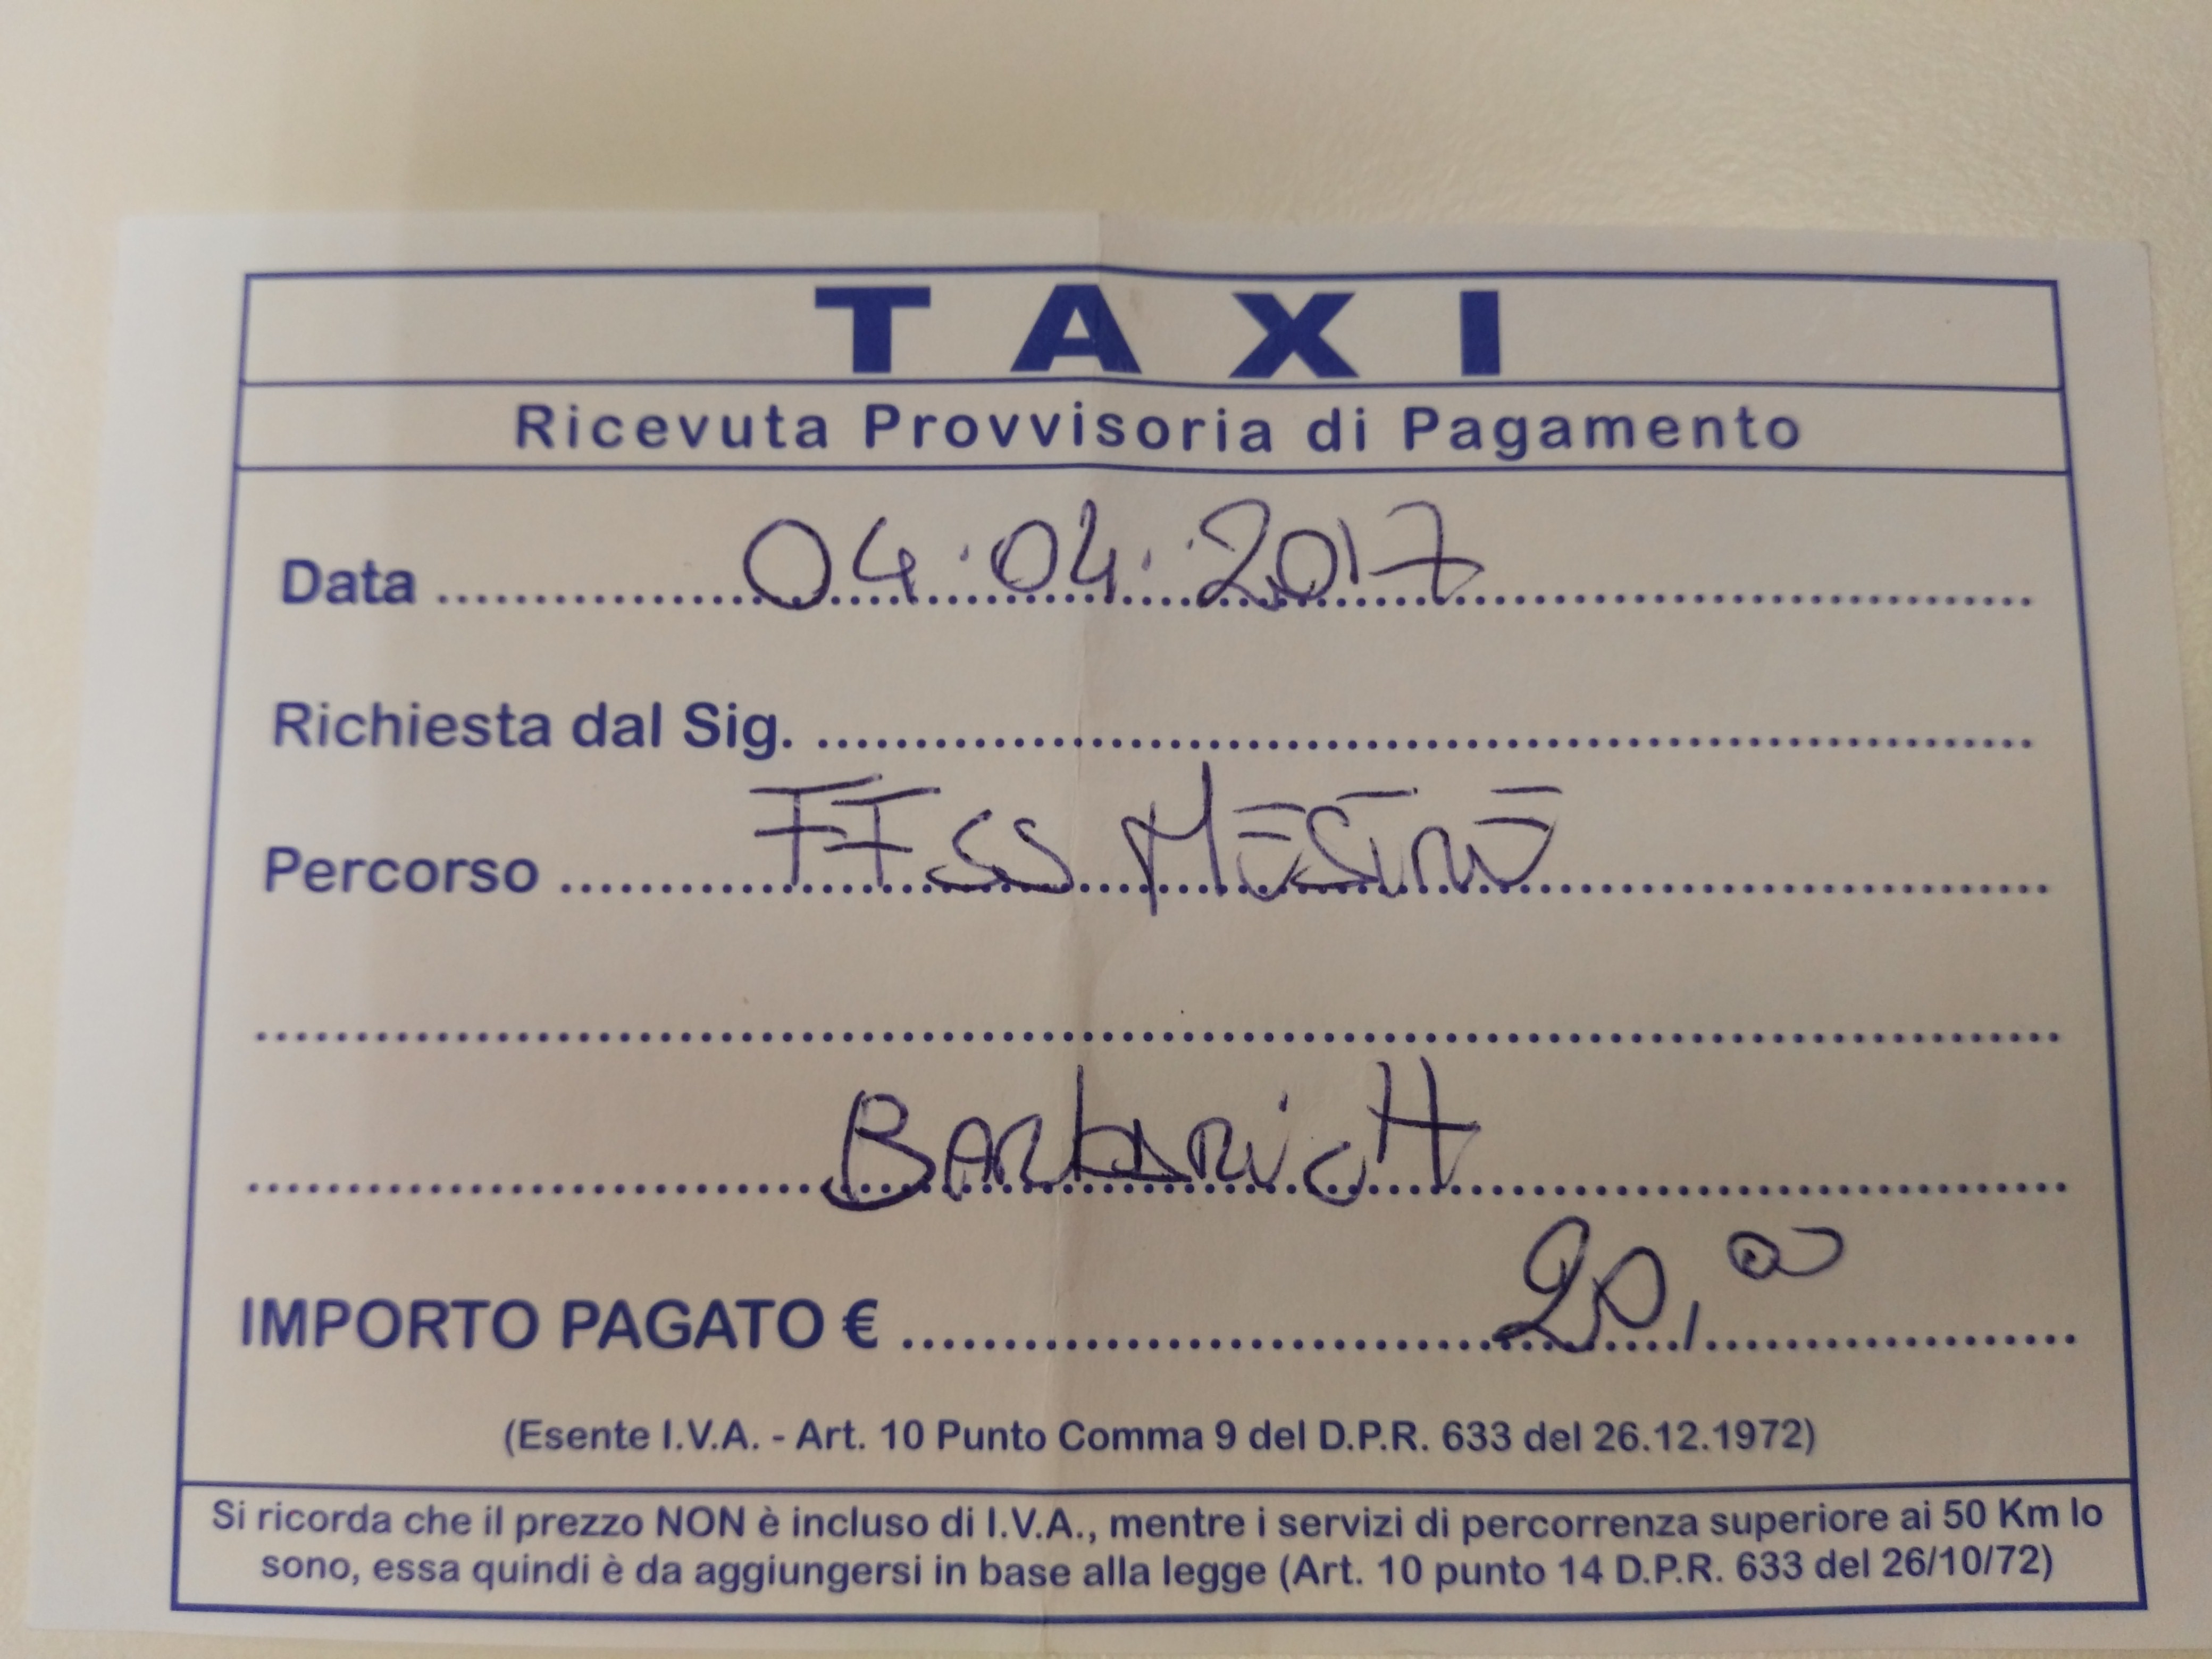 TAXI
Ricevuta Provvisoria di Pagamento
Data ........ 04·04·2017 ........
Richiesta dal Sig. ........
Percorso ........ FFSS MESTRE ........
........
........ BARbARicH ........
IMPORTO PAGATO € ........ 20,00 ........
(Esente I.V.A. - Art. 10 Punto Comma 9 del D.P.R. 633 del 26.12.1972)
Si ricorda che il prezzo NON è incluso di I.V.A., mentre i servizi di percorrenza superiore ai 50 Km lo
sono, essa quindi è da aggiungersi in base alla legge (Art. 10 punto 14 D.P.R. 633 del 26/10/72)